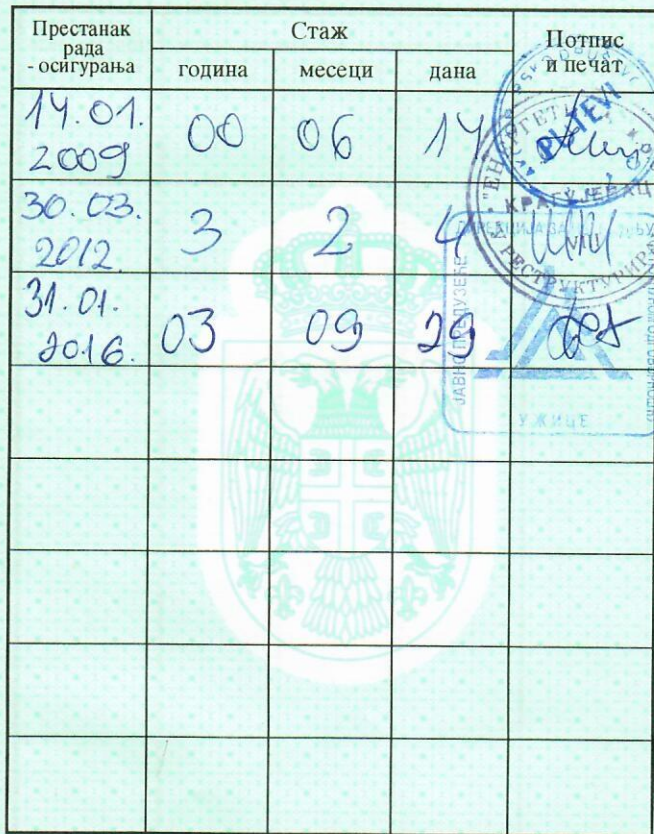 Престанак
рада
- осигурања
Стаж
година
месеци
дана
Потпис
и печат
14.01.
2009
00
06
14
PUTEVI
30.03.
2012.
3
2
4
КРАГУЈЕВАЦ
31.01.
2016.
03
09
29
ЈАВНО ПРЕДУЗЕЋЕ
УЖИЦЕ